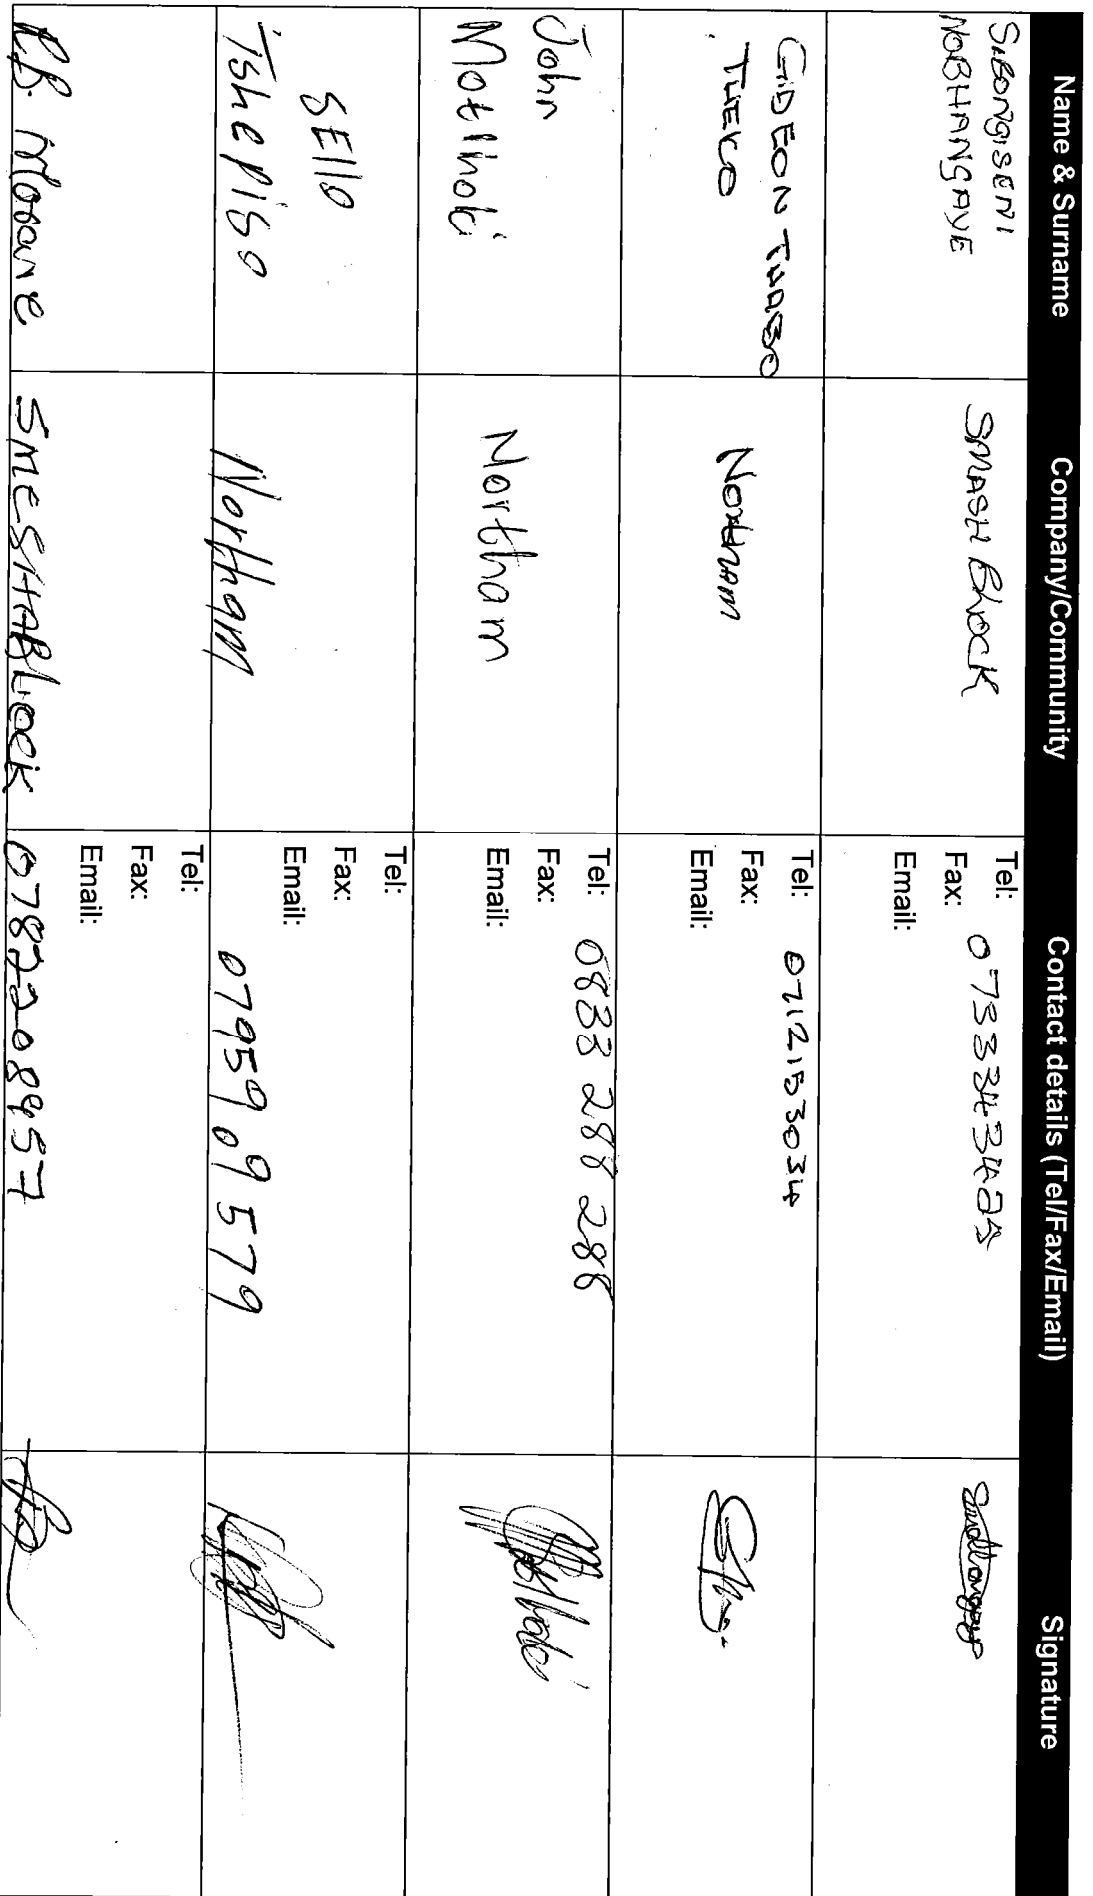 Name & Surname Company/Community Contact details (Tel/Fax/Email) Signature
SIBONGISENI
NOBHANGAYE
SMASH BLOCK
Tel:
Fax:
Email:
GIDEON THABO
THEKO
Northam
Tel: 0712153034
Fax:
Email:
John
Motlhabi
Northam
Tel: 0833 288 288
Fax:
Email:
SEllO
Tshepiso
Northam
Tel:
Fax:
Email:
0795909579
SMESHABLOCK
Tel:
Fax:
Email: